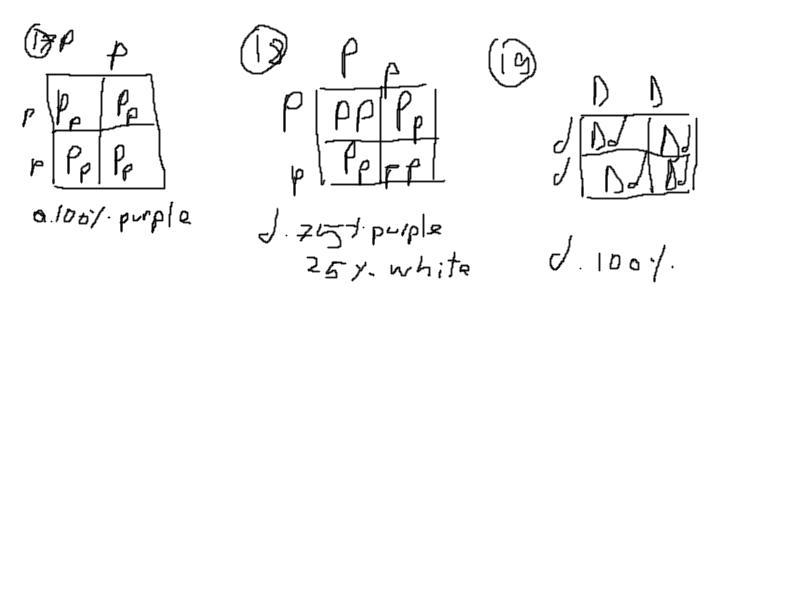 17 P P
p Pp Pp
p Pp Pp
a. 100% purple
18
P p
P PP Pp
p Pp pp
d. 75% purple
25% white
19
D D
d Dd Dd
d Dd Dd
d. 100%.